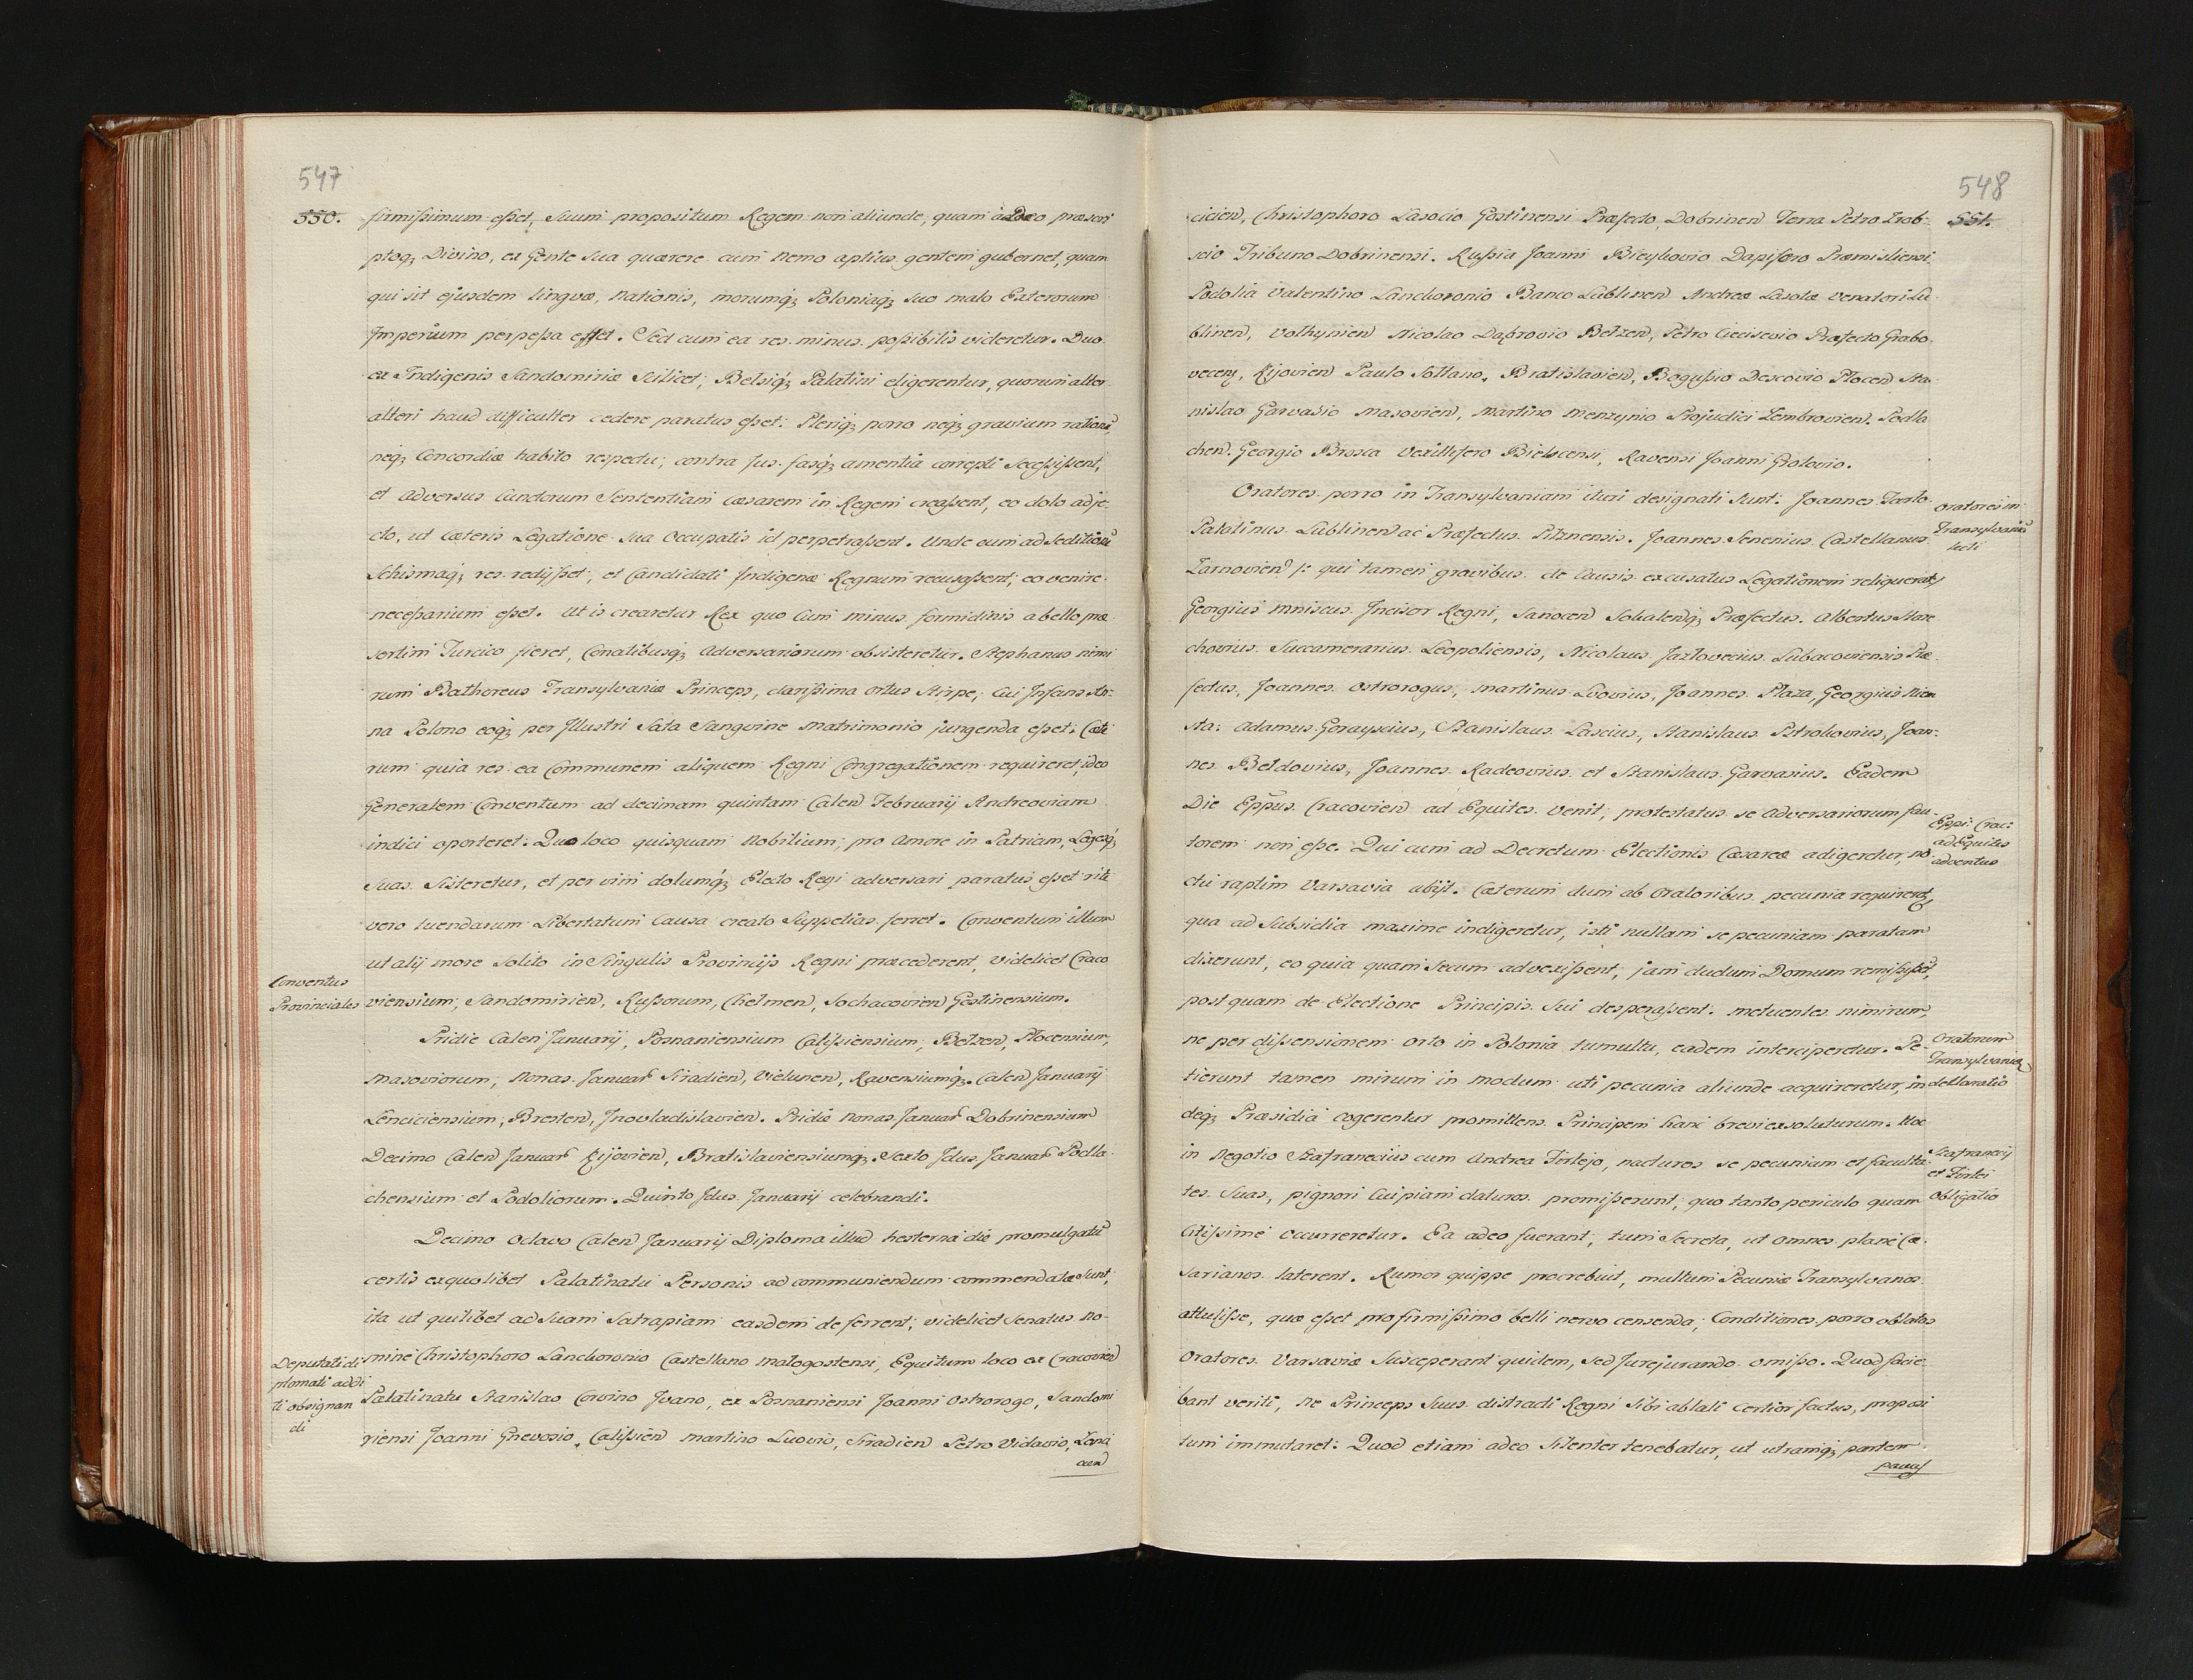 547
550.
firmissimum esset, suum propositum Regem non aliunde, quam à Deo præscri
ptoq; Divino, ex Gente sua quærere cum nemo aptius gentem gubernet, quam
qui sit ejusdem linguæ, nationis, morumq; Poloniaq; suo malo Exterorum
Imperium perpessa esset. Sed cum ea res minus possibilis videretur. Duo
ex Indigenis Sandomiriæ scilicet, Belsiq; Palatini eligerentur, quorum alter
alteri haud difficulter cedere paratus esset: Pleriq; porro neq; gravium rationũ,
neq; Concordiæ habito respectu, contra Jus fasq; amentia correpti secessissent,
et adversus Cunctorum Sententiam Cæsarem in Regem creassent, eo dolo adje
cto, ut Cæteris Legatione sua Occupatis id perpetrassent. Unde cum ad Seditionẽ
Schismaq; res redijsset, et Candidati Indigenæ Regnum recusassent, eo venire
necessarium esset. Ut is crearetur Rex quo Cum minus formidinis a bello præ
sertim Turcico fieret, Conatibusq; Adversariorum obsisteretur. Stephanus nimi
rum Bathoreus Transylvaniæ Princeps, clarissima ortus Stirpe, Cui Infans An
na Polono eoq; per Illustri Sata Sanguine matrimonio jungenda esset. Cæte
rum quia res ea Communem aliquem Regni Congregationem requireret, ideo
Generalem Conventum ad decimam quintam Calen Februarij Andreoviam
indici oporteret: Quo loco quisquam Nobilium, pro Amore in Patriam, Legesq;
suas Sisteretur, et per vim dolumq; Electo Regi adversari paratus esset rite
vero tuendarum Libertatum Causa creato Suppetias ferret. Conventum illum
ut alij more solito in Singulis Provincijs Regni præcederent, videlicet Craco
Conventus
Provinciales
viensium, Sandomirien, Russorum, Chelmen, Sochacovien Gestinensium.
Pridie Calen Januarij, Posnaniensium Calissiensium, Belzen, Plocensium,
Masoviorum, Nonas Januar Siradien, Vielunen, Ravensiumq;. Calen Januarij
Lenciciensium, Bresten, Inovladislavien. Pridie Nonas Januar Dobrinensium
Decimo Calen Januar Kijovien, Bratislaviensiumq;. Sexto Idus Januar Podla
chensium et Podoliorum. Quinto Idus Januarij celebrandi.
Decimo Octavo Calen Januarij Diploma illud hesterna die promulgatũ
certis ex quolibet Palatinatu Personis ad communiendum commendatæ sunt,
ita ut quilibet ad suam Satrapiam easdem deferrent; videlicet Senatus no-
Deputati di
plomati addi
ti obsignan
di
mine Christophoro Lanckoronio Castellano Malogostensi, Equitum loco ex Cracovien
Palatinatu Stanislao Corvino Ivano, ex Posnaniensi Joanni Ostrorogo, Sandomi
riensi Joanni Gnevosio, Calissien Martino Lvovio, Siradien Petro Vidavio, Lenci
cien
548
551.
cicien, Christophoro Lasocio Gostinensi Præfecto, Dobrinen Terra Petro Zrob
scio Tribuno Dobrinensi. Russia Joanni Bieykovio Dapifero Præmisliensi
Podolia Valentino Lanckoronio Banco Lublinen Andreæ Lasotæ Venatori Lu
blinen, Volhynien Nicolao Dąbrovio Belzen, Petro Cieciscvio Præfecto Grabo
vecen, Kijovien Paulo Soltano, Bratislavien, Bogussio Descovio Plocen Sta
nislao Garvasio Masovien, Martino Menzynio Projudici Zembrovien. Podla
chen. Georgio Brosca Vexillifero Bielscensi, Ravensi Joanni Grotovio.
Oratores porro in Transylvaniam ituri designati sunt: Joannes Tarlo
Oratores in
Transylvaniã
lecti
Palatinus Lublinen ac Præfectus Pilznensis. Joannes Senenius Castellanus
Zarnovien /: qui tamen gravibus de Causis excusatus Legationem reliquerat:/
Georgius Mniscus Incisor Regni, Sanocen Sokalenq; Præfectus. Albertus Stare
chovius Succamerarius Leopoliensis, Nicolaus Jazlovecius Lubacoviensis Præ
fectus, Joannes Ostrorogus, Martinus Lvovius, Joannes Plaza, Georgius Niem
sta: Adamus Gorayscius, Stanislaus Lascius, Stanislaus Ptrokovius, Joan
nes Beldovius, Joannes Radeovius et Stanislaus Garvasius. Eadem
Die Eppus Cracovien ad Equites venit, protestatus se Adversariorum fau
Eppi: Crac:
ad Equites
adventus
torem non esse. Qui cum ad Decretum Electionis Cæsareæ adigeretur, no
ctu raptim Varsavia abijt. Cæterum dum ab Oratoribus pecunia requireret,
qua ad Subsidia maxime indigeretur, isti nullam se pecuniam paratam
dixerunt, eo quia quam secum advexissent, jam dudum Domum remisissẽt,
post quam de Electione Principis sui desperassent. metuentes nimirum,
ne per dissensionem orto in Polonia tumultu, eadem interciperetur. Pe
Oratorum
Transylvaniæ
declaratio
tierunt tamen mirum in modum uti pecunia aliunde acquireretur, in
deq; Præsidia cogerentur promittens Principem hanc brevi exsoluturum. Hoc
in negotio Szafranecius cum Andrea Firlejo, nacturos se pecuniam et faculta
Szafranecij
et Firlei
obligatio
tes suas, pignori Cuipiam daturos promisserunt, quo tanto periculo quam
Citissime occurreretur. Ea adeo fuerant, tum Secreta, ut omnes plane Cæ
sarianos laterent. Rumor quippe procrebuit, multum Pecuniæ Transylvanos
attulisse, quæ esset pro firmissimo belli nervo censenda; Conditiones porro oblatas
Oratores Varsaviæ susceperant quidem, sed Jurejurando omisso. Quod facie
bant veriti, ne Princeps suus distracti Regni sibi ablati Certior factus, proposi
tum immutaret: Quod etiam adeo silenter tenebatur, ut utramq; partem